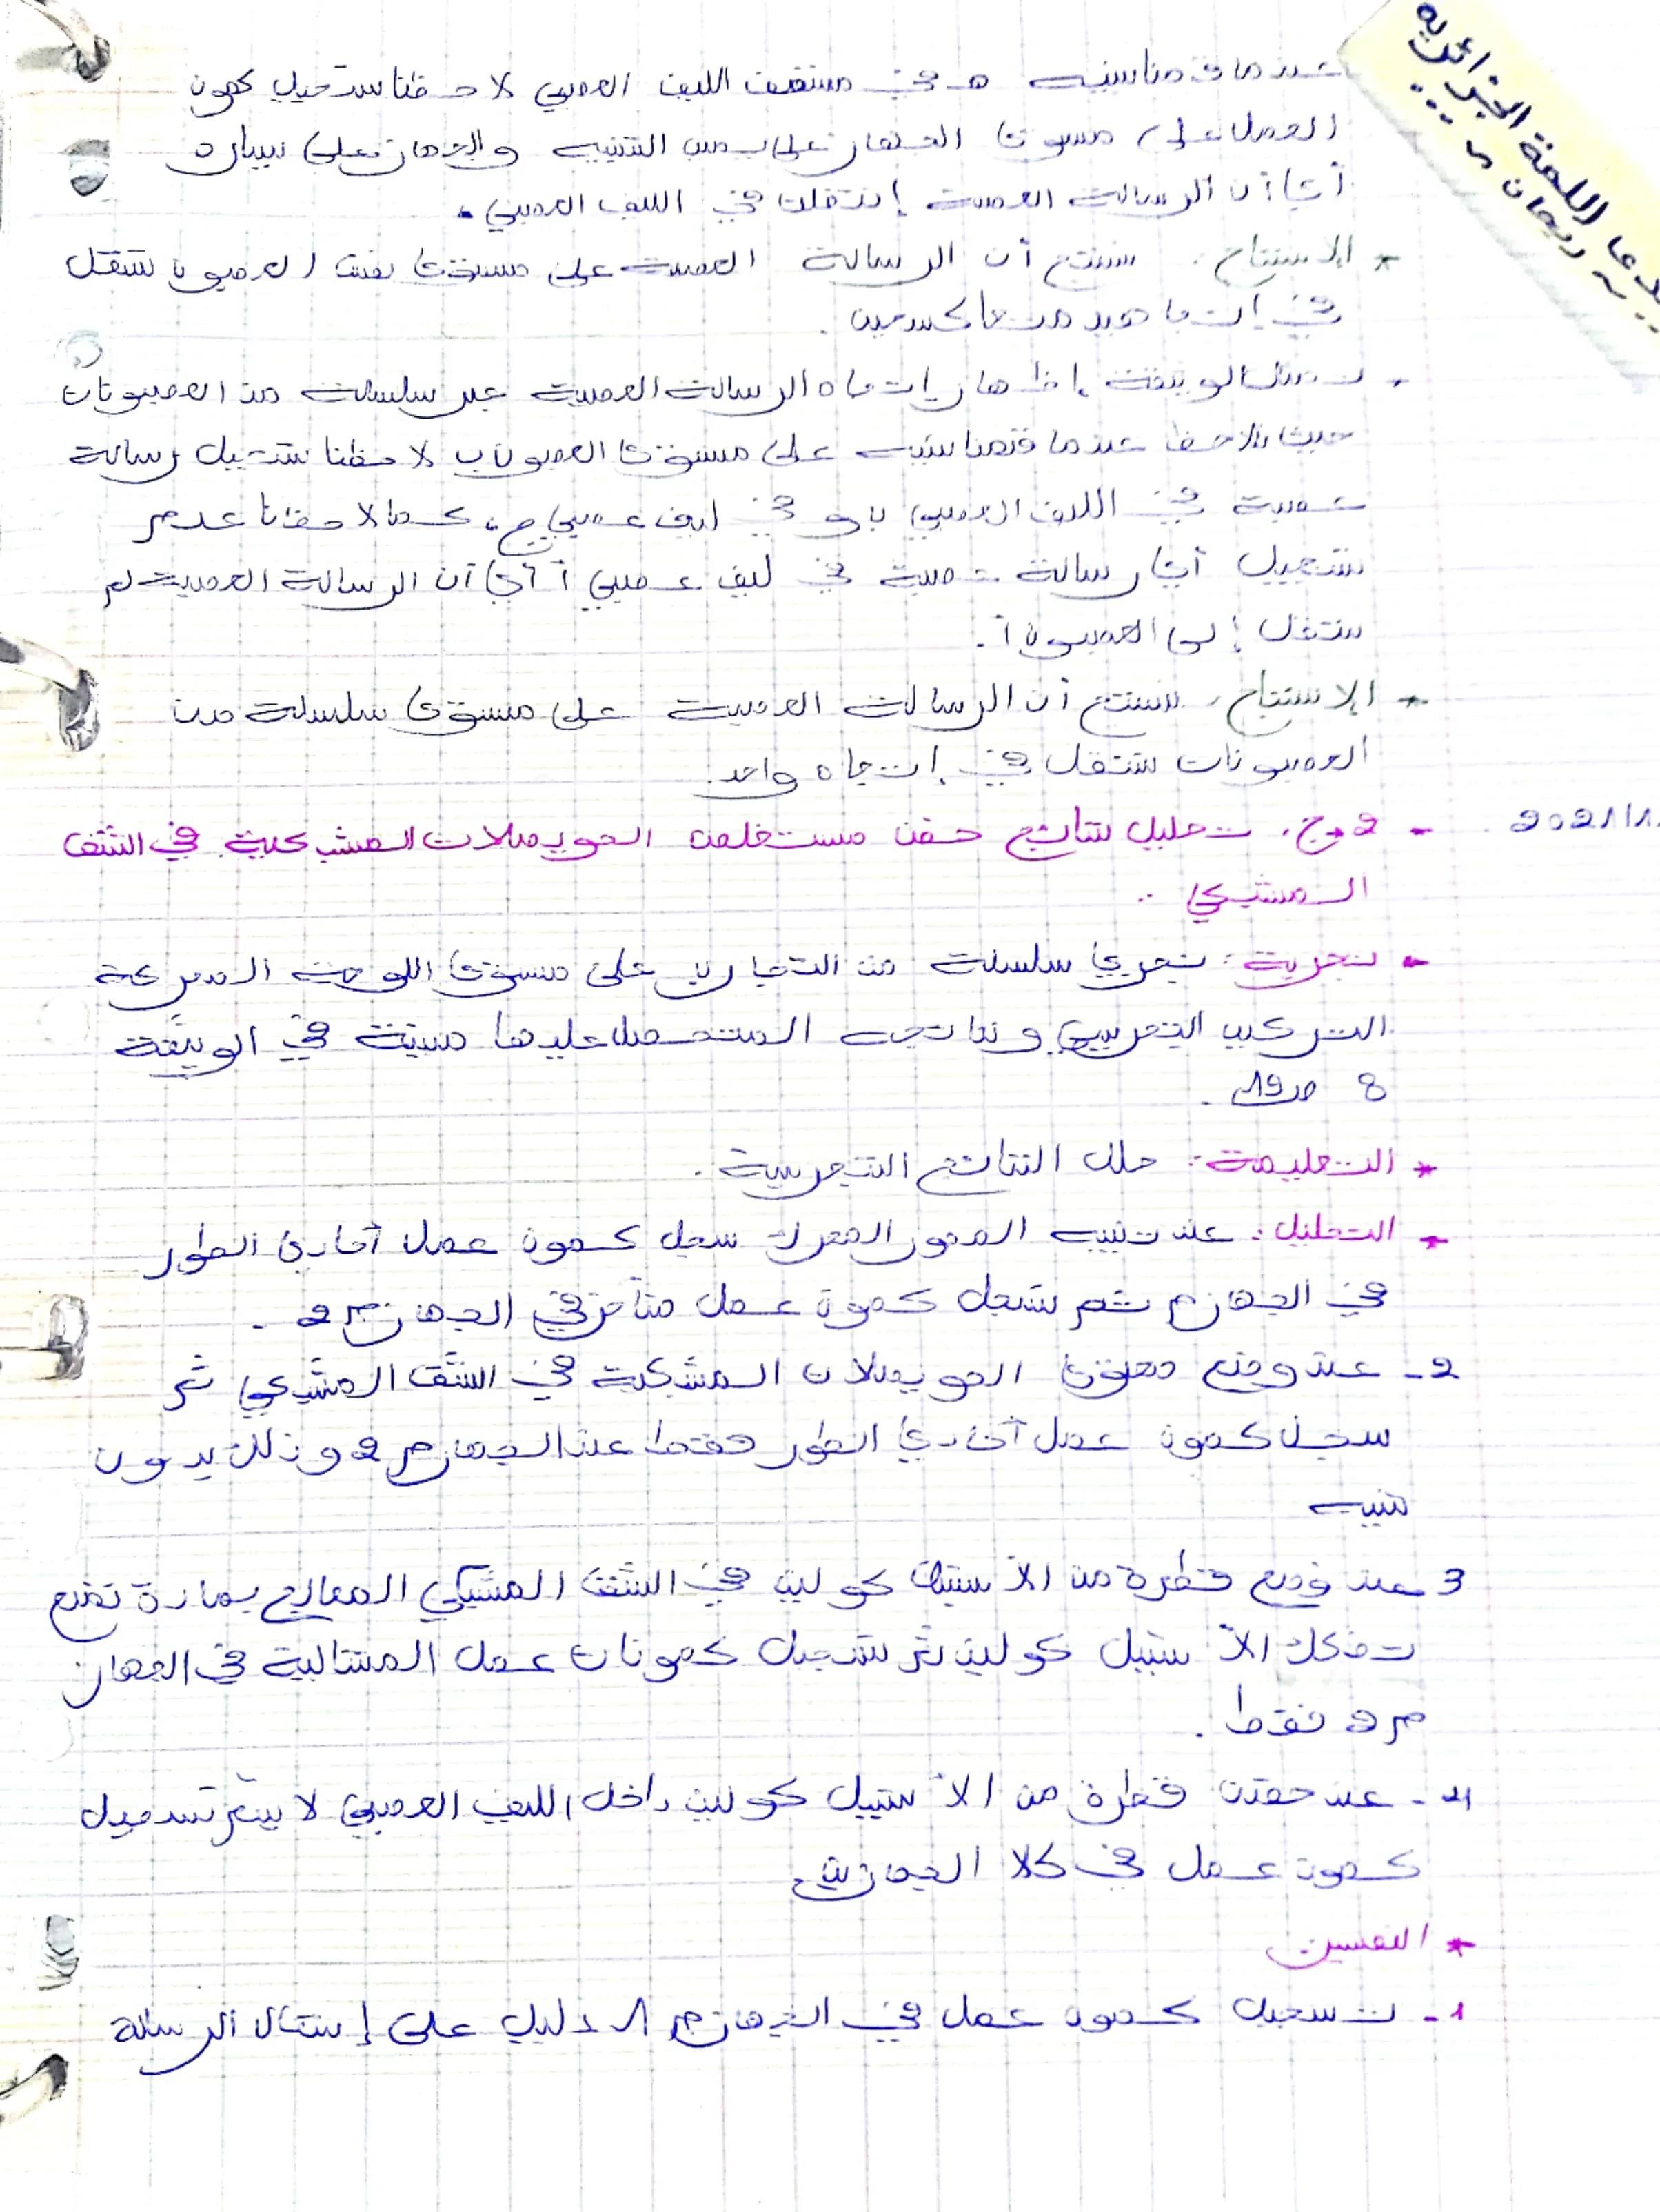 عندما قمنا بتنبيه في منتصف الليف العصبي لاحظنا تسجيل كمون
العمل على مستوى الجهاز على يمين التنبيه والجهاز على يساره
أي أن الرسالة العصبية إنتقلت في الليف العصبي.
* الإستنتاج: نستنتج أن الرسالة العصبية على مستوى نفس العصبون تنتقل
في إتجاهين متعاكسين.
- تمثل الوثيقة إظهار إتجاه الرسالة العصبية عبر سلسلة من العصبونات
حيث نلاحظ عندما قمنا بتنبيه على مستوى العصبون ب لاحظنا تسجيل رسالة
عصبية في الليف العصبي ب و في ليف عصبي ج، كما لاحظنا عدم
تسجيل أي رسالة عصبية في ليف عصبي أ أي أن الرسالة العصبية لم
تنتقل إلى العصبون أ.
* الإستنتاج: نستنتج أن الرسالة العصبية على مستوى سلسلة من
العصبونات تنتقل في إتجاه واحد.
2021/11
- 2-ج. تحليل نتائج حقن مستخلص الحويصلات المشبكية في الشق
المشبكي:
- تجربة: نجري سلسلة من التجارب على مستوى اللوحة المحركة
التركيب التجريبي و نتائجه المتحصل عليها مبينة في الوثيقة
8 ص19.
* التعليمة: حلل النتائج التجريبية.
* التحليل: عند تنبيه العصبون المحرك سجل كمون عمل أحادي الطور
في الجهاز م ثم تسجل كمون عمل متأخر في الجهاز م2.
2- عند وضع محتوى الحويصلات المشبكية في الشق المشبكي ثم
سجل كمون عمل أحادي الطور فقط عند الجهاز م2 و ذلك بدون
تنبيه
3- عند وضع قطرة من الأستيل كولين في الشق المشبكي المعالج بمادة تمنع
تفكك الأستيل كولين ثم تسجيل كمونات عمل المتتالية في الجهاز
م2 فقط.
4- عند حقن قطرة من الأستيل كولين داخل الليف العصبي لا يتم تسجيل
كمون عمل في كلا الجهازين.
* التفسير:
1- تسجيل كمون عمل في الجهاز م1 دليل على إنتقال الرسالة